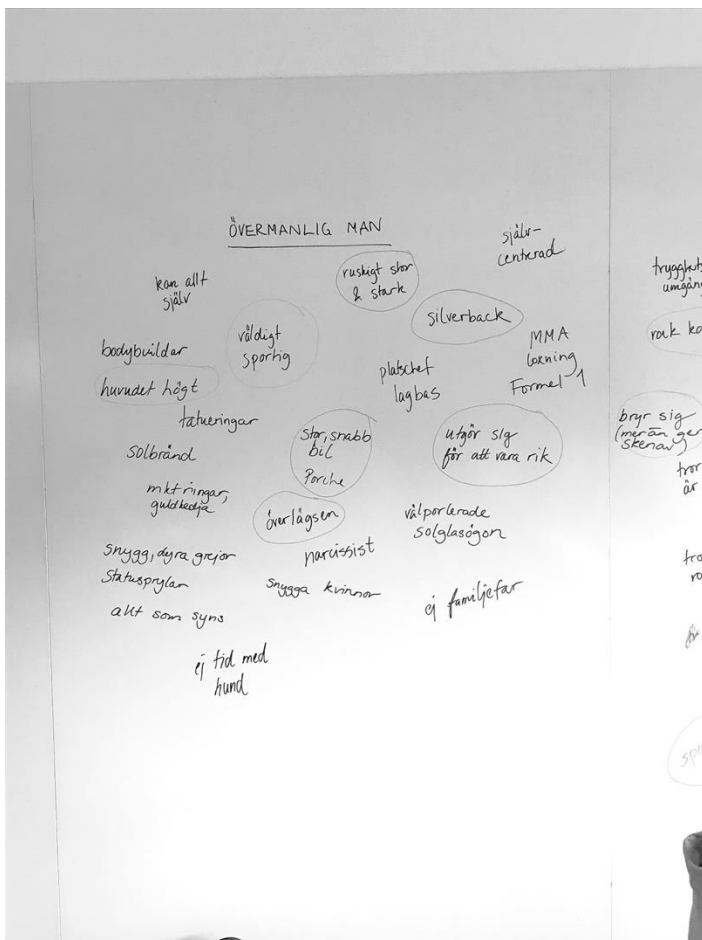 ÖVERMANLIG MAN
själv-
centrerad
kan allt
själv
ruskigt stor
& stark
silverback
väldigt
sportig
MMA
boxning
Formel 1
bodybuildar
platschef
lagbas
huvudet högt
tatueringar
solbränd
Stor, snabb
bil
Porche
utgör sig
för att vara rik
mkt ringar,
guldkedja
överlägsen
välpolerade
solglasögon
snygg, dyra grejor
statusprylar
narcissist
snygga kvinnor
ej familjefar
allt som syns
ej tid med
hund
trygghets
umgäng
rock ko
bryr sig
(mer än ger
skenav)
tror
är